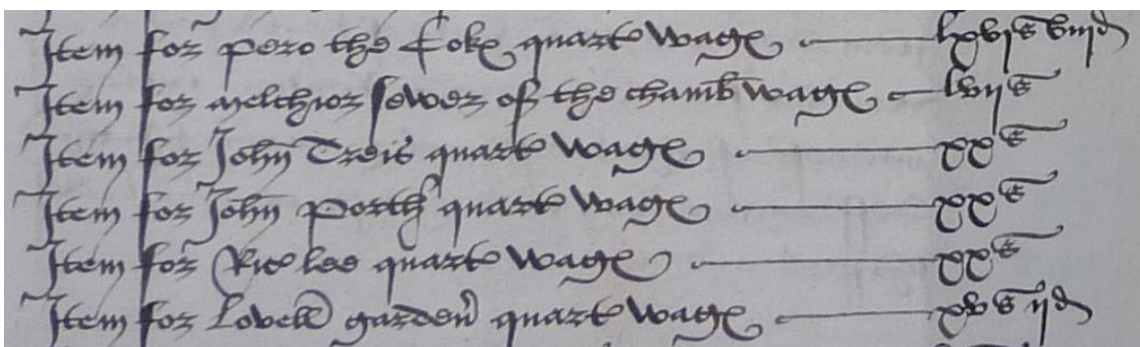 Item for pero the Coke quart wage lxvjs viijd
Item for melchior sewer of the chamb wage lvijs
Item for John Treis quart wage xxs
Item for John Porth quart wage xxs
Item for Ric lee quart wage xxs
Item for Lovell garden quart wage xvs ijd